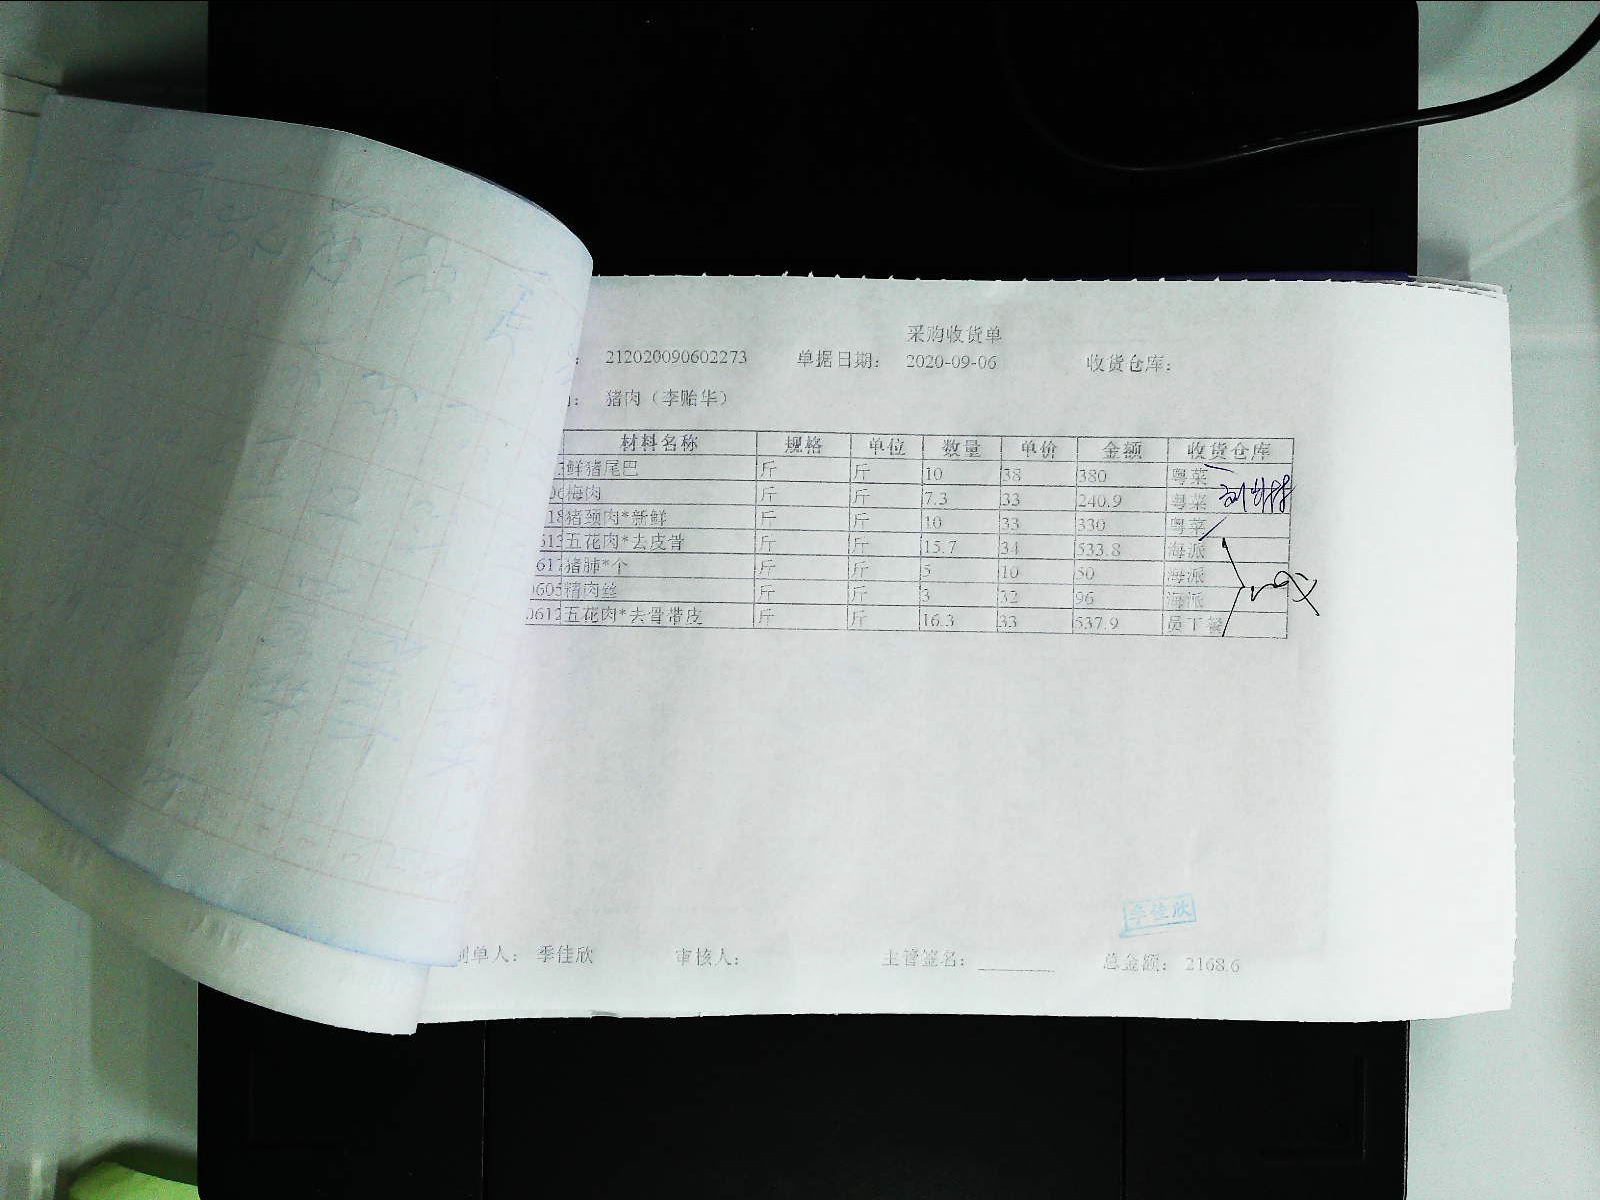 采购收货单
: 212020090602273 单据日期: 2020-09-06 收货仓库:
: 猪肉（李贻华）
材料名称 规格 单位 数量 单价 金额 收货仓库
鲜猪尾巴 斤 斤 10 38 380 粤菜
梅肉 斤 斤 7.3 33 240.9 粤菜
18 猪颈肉*新鲜 斤 斤 10 33 330 粤菜
613 五花肉*去皮骨 斤 斤 15.7 34 533.8 海派
617 猪肺*个 斤 斤 5 10 50 海派
0605 精肉丝 斤 斤 3 32 96 海派
0612 五花肉*去骨带皮 斤 斤 16.3 33 537.9 员工餐
季佳欣
制单人: 季佳欣 审核人: 主管签名: 总金额: 2168.6